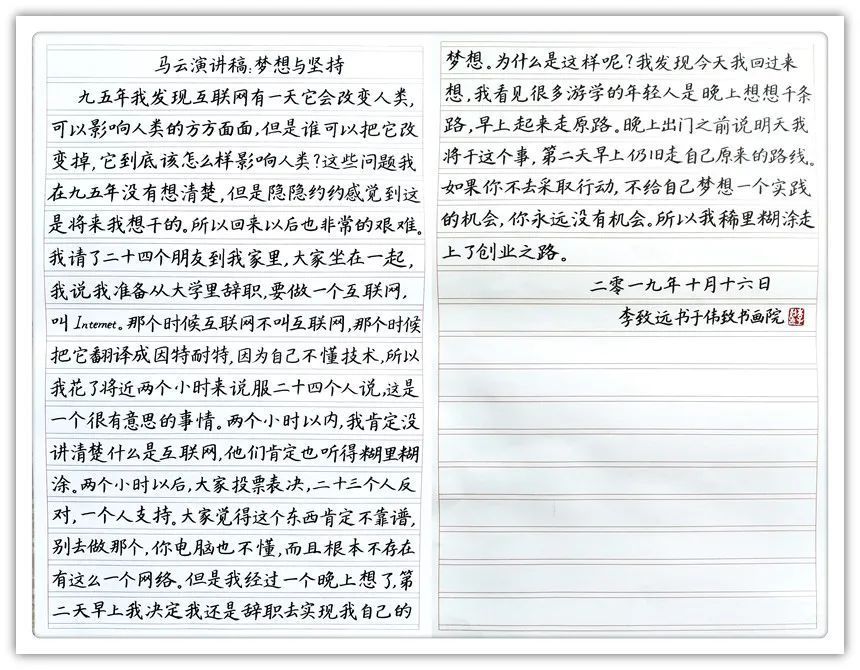 马云演讲稿:梦想与坚持
九五年我发现互联网有一天它会改变人类,
可以影响人类的方方面面,但是谁可以把它改
变掉,它到底该怎么样影响人类?这些问题我
在九五年没有想清楚,但是隐隐约约感觉到这
是将来我想干的。所以回来以后也非常的艰难。
我请了二十四个朋友到我家里,大家坐在一起,
我说我准备从大学里辞职,要做一个互联网,
叫Internet。那个时候互联网不叫互联网,那个时候
把它翻译成因特耐特,因为自己不懂技术,所以
我花了将近两个小时来说服二十四个人说,这是
一个很有意思的事情。两个小时以内,我肯定没
讲清楚什么是互联网,他们肯定也听得糊里糊
涂。两个小时以后,大家投票表决,二十三个人反
对,一个人支持。大家觉得这个东西肯定不靠谱,
别去做那个,你电脑也不懂,而且根本不存在
有这么一个网络。但是我经过一个晚上想了,第
二天早上我决定我还是辞职去实现我自己的
梦想。为什么是这样呢?我发现今天我回过来
想,我看见很多游学的年轻人是晚上想想千条
路,早上起来走原路。晚上出门之前说明天我
将干这个事,第二天早上仍旧走自己原来的路线。
如果你不去采取行动,不给自己梦想一个实践
的机会,你永远没有机会。所以我稀里糊涂走
上了创业之路。
二零一九年十月十六日
李致远书于伟致书画院